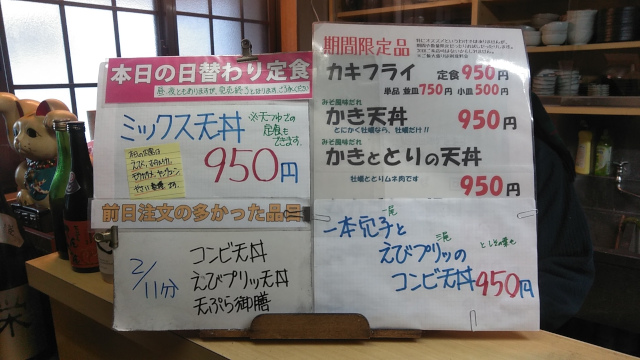 本日の日替わり定食
ミックス天丼
※天つゆさの
定食も
できます。
950円
前日注文の多かった品
2/11分
コンビ天丼
えびプリッ天丼
天ぷら御膳
期間限定品
カキフライ 定食950円
単品 並皿750円 小皿500円
みそ風味だれ
かき天丼
とにかく牡蠣なら、牡蠣だけ!!
950円
みそ風味だれ
かきととりの天丼
牡蠣ととりムネ肉です
950円
一尾
一本穴子と
三尾
えびプリッの
コンビ天丼950円